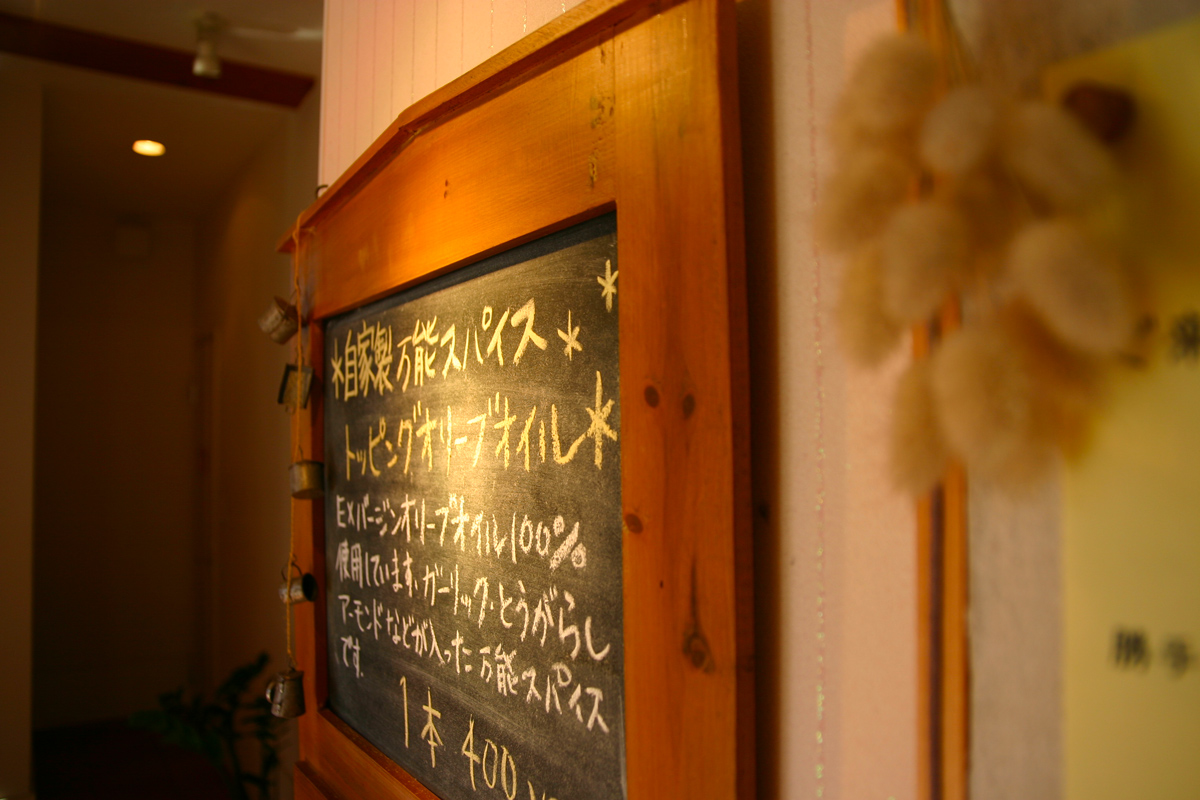 *自家製万能スパイス*
トッピングオリーブオイル*
EXバージンオリーブオイル100%
使用しています、ガーリック・とうがらし
アーモンドなどが入った万能スパイス
です。
1本 400
勝手